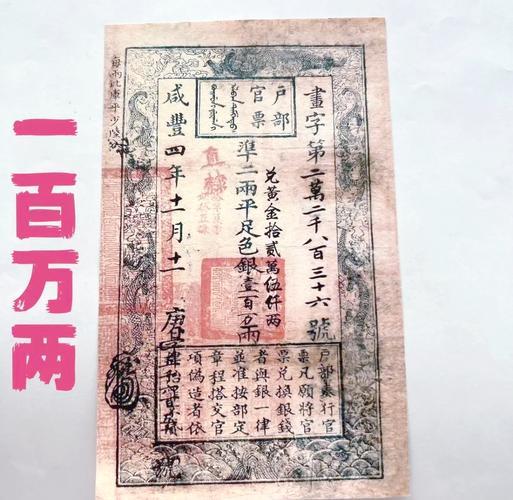 一百万两
每兩比庫平少陸分
戶部
官票
畫字第二萬二千八百三十六號
兌黃金拾貳萬伍仟两
準二兩平足色銀壹百万兩
咸豐四年十一月十一
直隸
戶部奏行官
票凡願將官
票兌換銀錢
者與銀一律
並准按部定
章程搭交官
項偽造者依
號